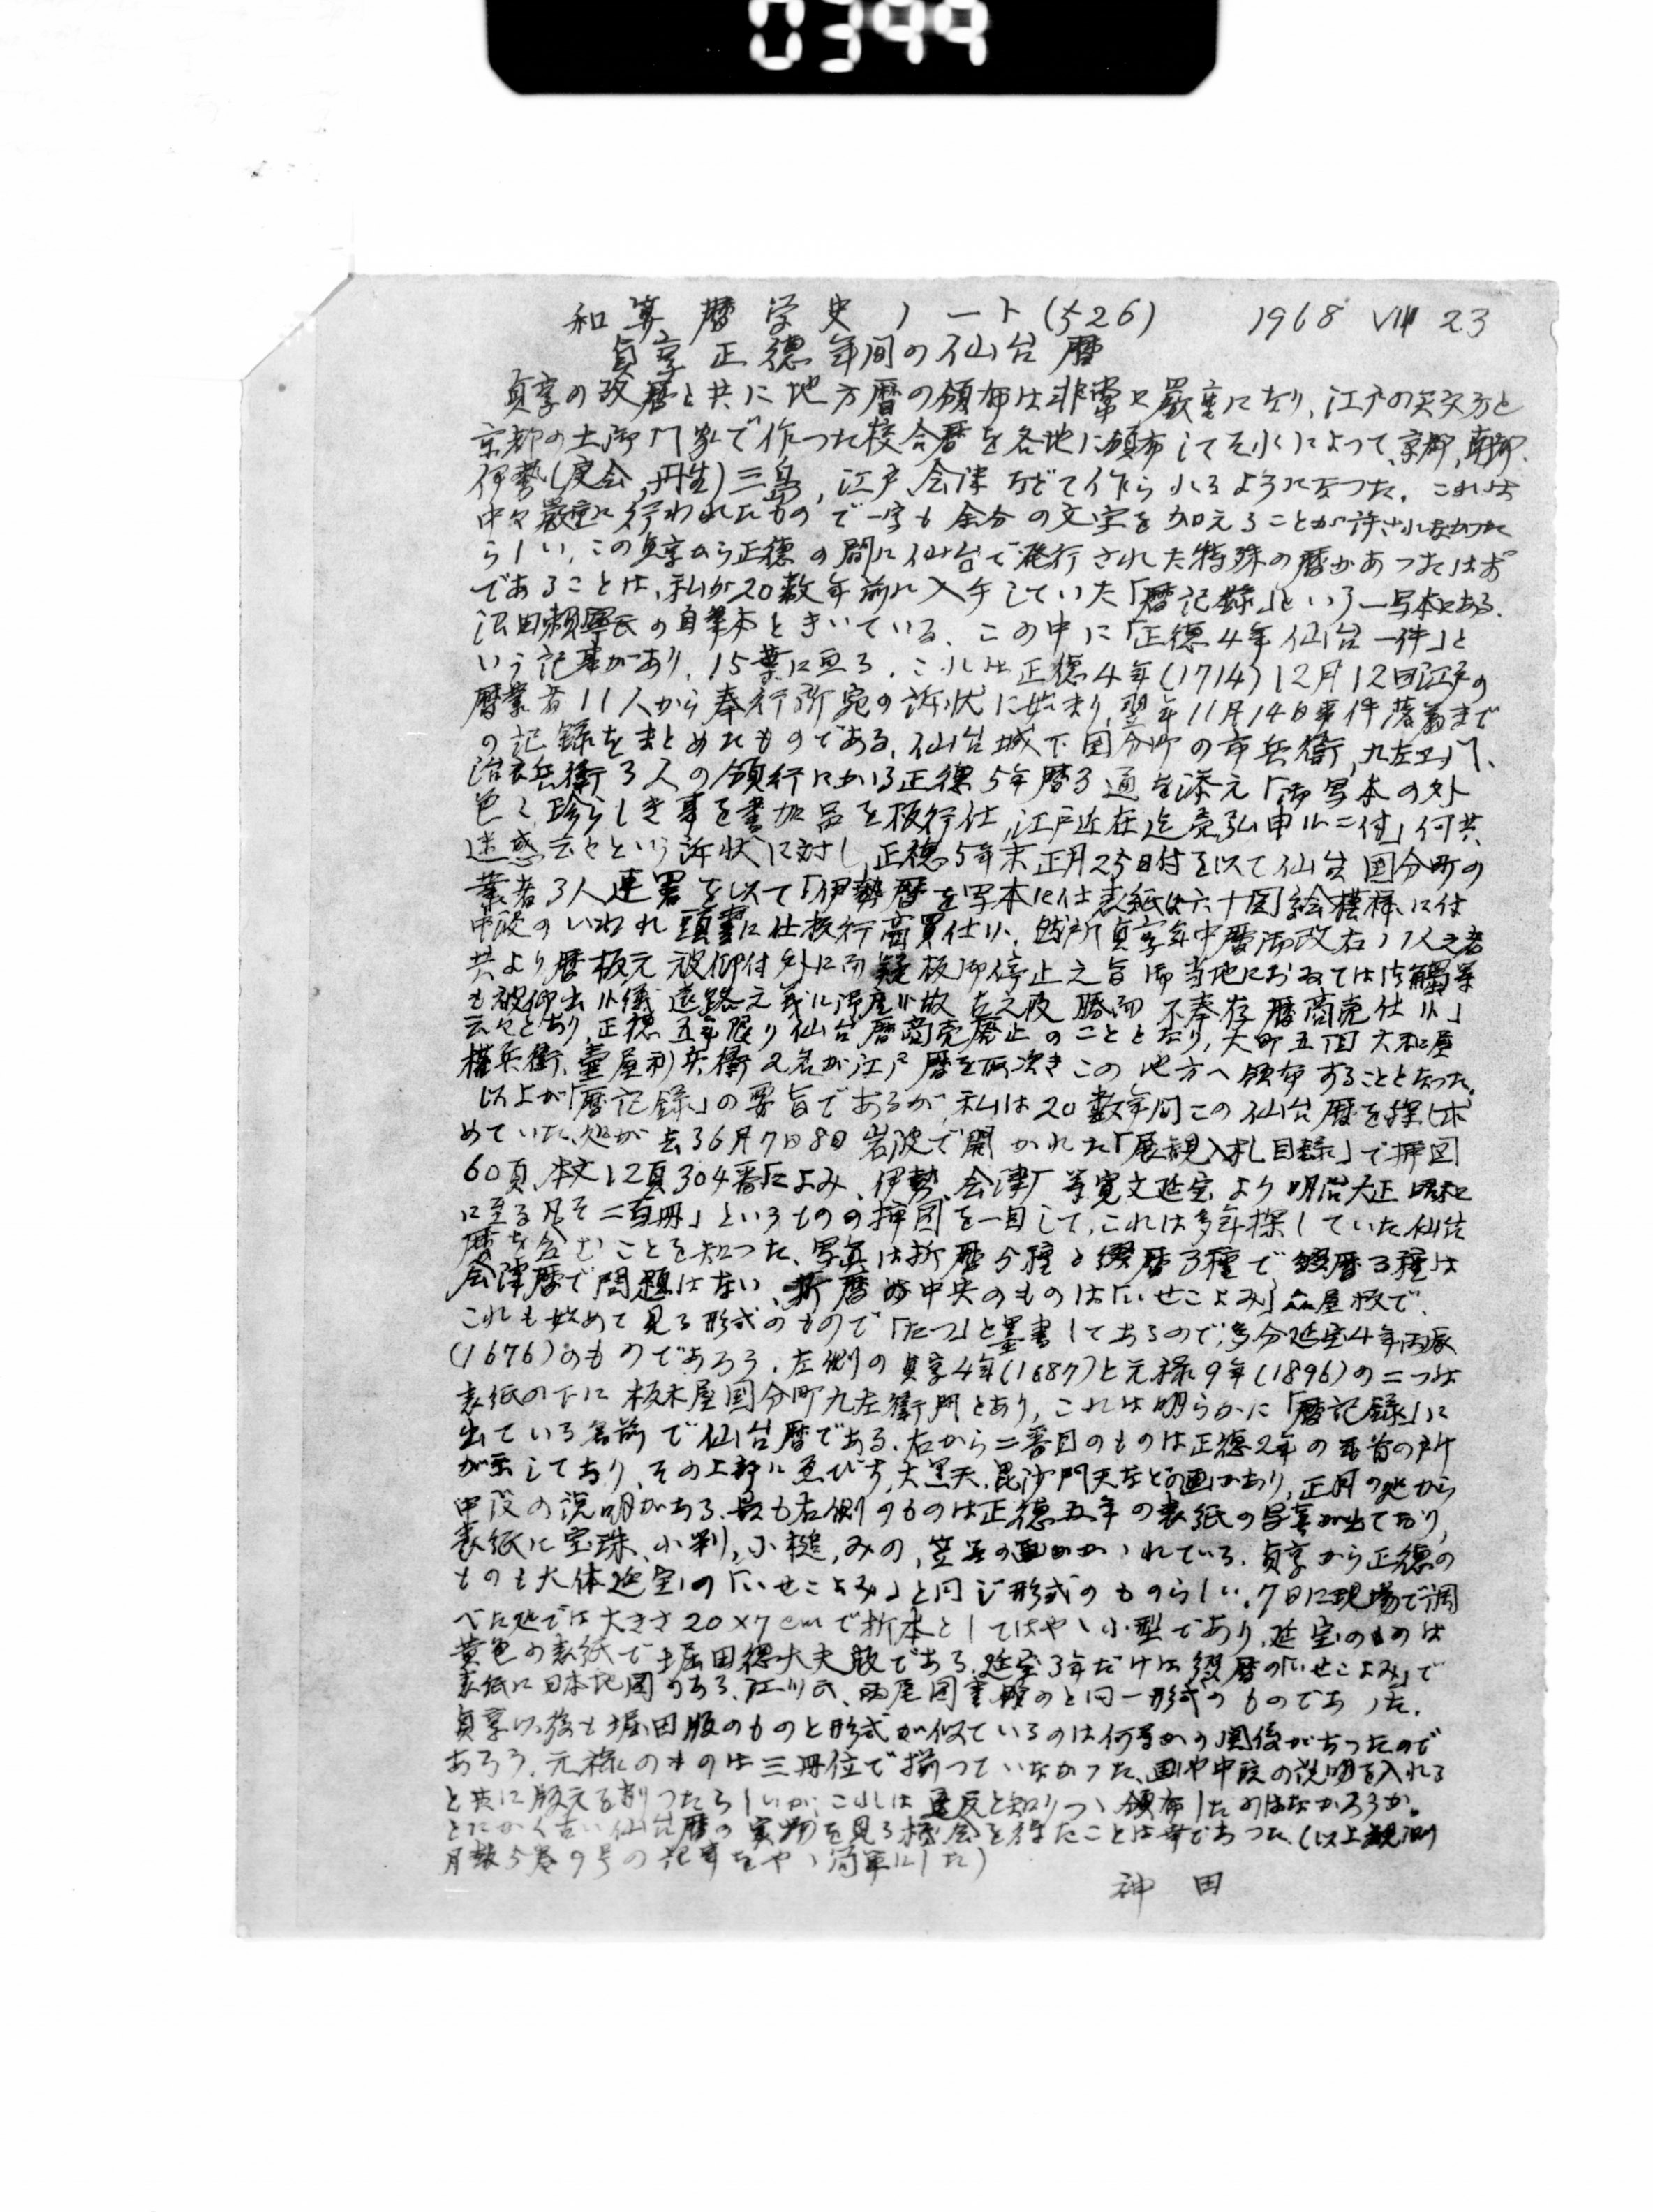 0399
和算暦学史ノート(526) 1968 VIII 23
貞享正徳年間の仙台暦
貞享の改暦と共に地方暦の頒布は非常に厳重になり、江戸の天文方と
京都の土御門家で作つた校合暦を各地に頒布してそれによつて、京都、南都、
伊勢(度会,丹生)三島,江戸,会津などで作られるようになつた。これは
中々厳重に行われたもので一字も余分の文字を加えることが許されなかつた
らしい,この貞享から正徳の間に仙台で発行された特殊の暦があつた
であることは、私が20数年前に入手していた「暦記録」という一写本にある.
沼田頼輔氏の自筆本ときいている、この中に「正徳4年仙台一件」と
いう記事があり,15葉に亘る.これは正徳4年(1714)12月12日江戸の
暦業者11人から奉行所宛の訴状に始まり,翌年11月14日事件落着まで
の記録をまとめたものである,仙台城下国分町の市兵衛,九左エ門、
治衣兵衛3人の頒行にかゝる正徳5年暦3通を添え「御写本の外
色々珍らしき事を書加品を板行仕,江戸近在迄売弘申候ニ付」何共
迷惑云々という訴状に対し,正徳5年未正月25日付を以て仙台国分町の
業者3人連署を以て「伊勢暦を写本に仕表紙は六十図絵模様に付
中段のいわれ頭書に仕板行商買仕候、然所貞享年中暦御改右11人之者
共より暦板元被仰付外に而類板御停止之旨御当地におゐては御触等
も被仰出候儀遠路之義に御座候故左之段勝而不奉存暦商売仕候」
云々とあり,正徳五年限り仙台暦商売廃止のこととなり,大町五丁目大和屋
権兵衛、壷屋利兵衛2名が江戸暦を取次きこの地方へ頒布することとなつた。
以上が「暦記録」の要旨であるが,私は20数年間この仙台暦を探し求
めていた、処が去る6月7日8日岩波で開かれた「展観入札目録」で挿図
60頁,本文12頁304番「こよみ、伊勢、会津等寛文延宝より明治大正昭和
に至る凡そ二百冊」というものの挿図を一目して,これは多年探していた仙台
暦を含むことを知つた、写真は折暦5種と綴暦3種で綴暦3種は
会津暦で問題はない、折暦の中央のものは「いせこよみ」森屋板で、
これも始めて見る形式のもので「たつ」と墨書してあるので,多分延宝4年丙辰
(1676)のものであろう.左側の貞享4年(1687)と元禄9年(1896)の二つは
表紙の下に板木屋国分町九左衛門とあり,これは明らかに「暦記録」に
出ている名前で仙台暦である.右から二番目のものは正徳2年の巻首の所
が示しており,その上部にゑびす,大黒天,毘沙門天などの画があり,正月の処から
中段の説明がある.最も右側のものは正徳五年の表紙の写真が出ており,
表紙に宝珠,小判,小槌,みの,笠等の画がかゝれている.貞享から正徳の
ものも大体延宝の「いせこよみ」と同じ形式のものらしい.7日に現場で調
べた処では大きさ20×7cmで折本としてはやゝ小型であり,延宝のものは
黄色の表紙で堀田徳大夫版である.延宝3年だけは綴暦の「いせこよみ」で
表紙に日本地図のある,江川氏、西尾図書館のと同一形式のものであつた.
貞享以後も堀田版のものと形式が似ているのは何等かの関係があつたので
あろう.元禄のものは三冊位で揃つていなかつた、画や中段の説明を入れる
と共に版元を削つたらしいが,これは違反と知りつゝ頒布したのはなかろうか。
とにかく古い仙台暦の実物を見る機会を得たことは幸であつた.(以上観測
月報5巻9号の記事をやゝ簡単にした)
神田